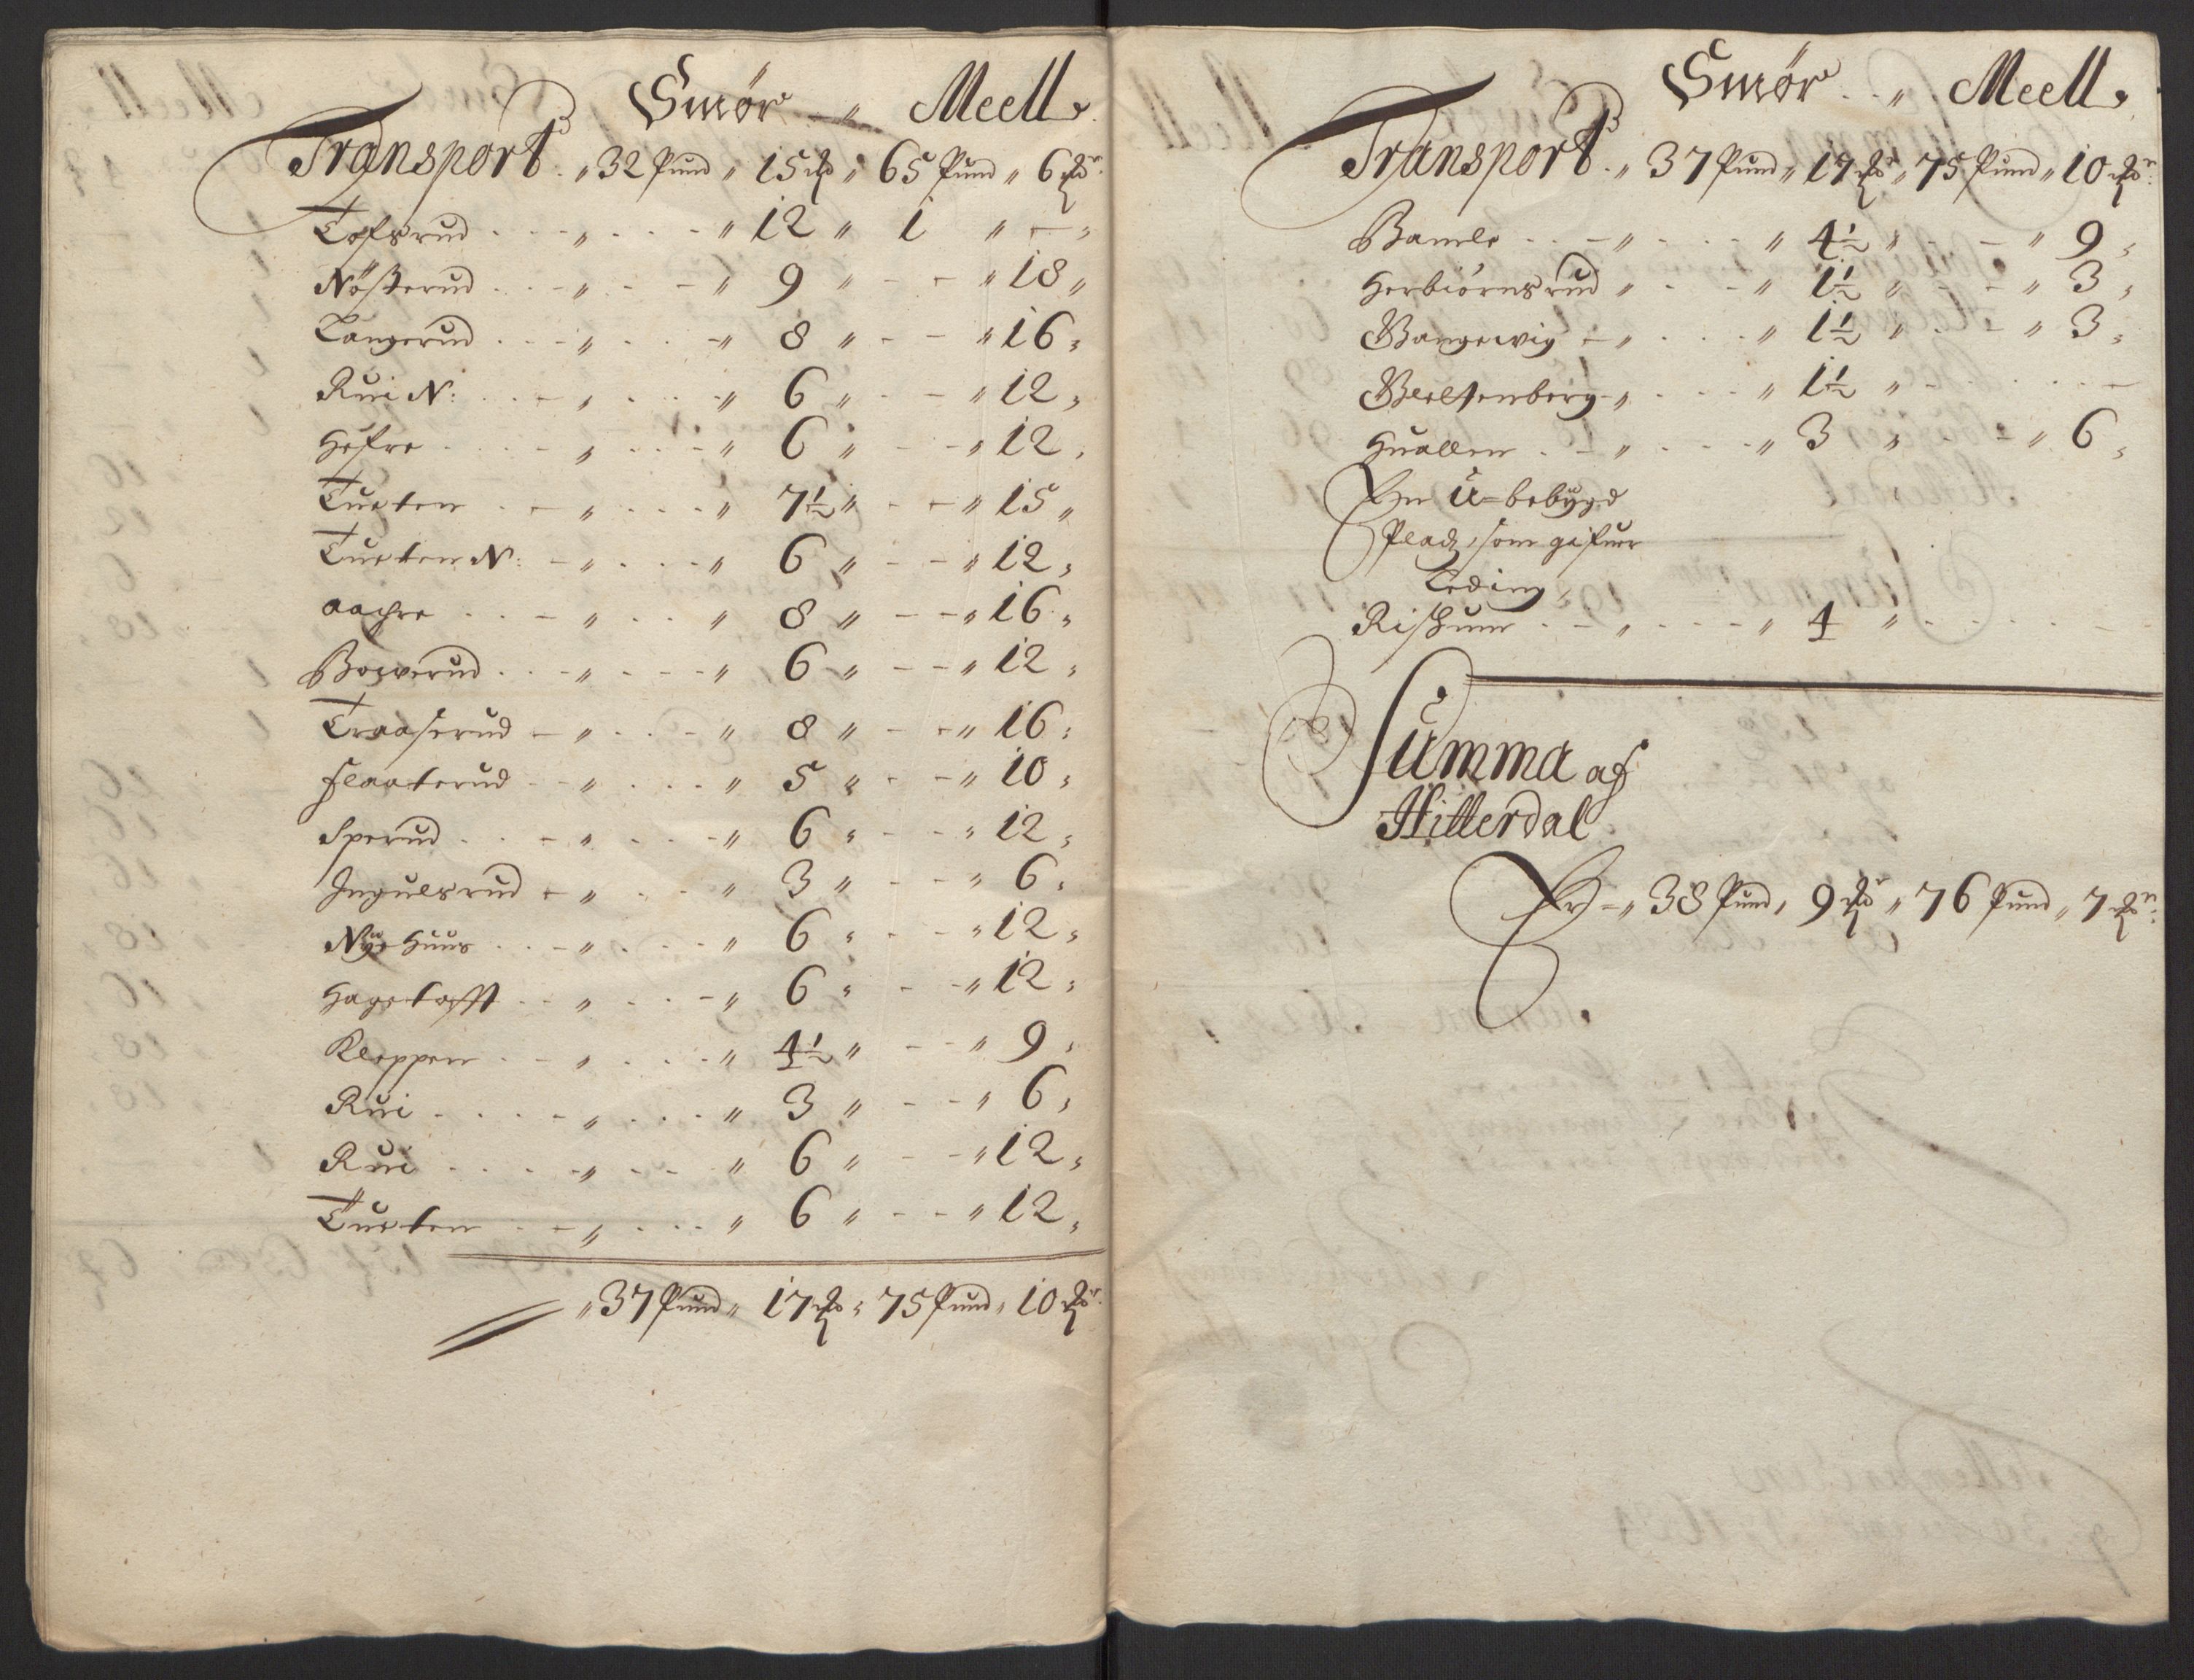 Smör „ Meell
Transport „ 32 Pund „ 15 ℔ „ 65 Pund „ 6 ℔r
Tofsrud - „ - „ 12 „ 1 „ - „
Nößterud - „ - „ 9 „ - „ 18 „
Langerud - „ - „ 8 „ - „ 16 „
Rui N: - „ - „ 6 „ - „ 12 „
Hofre - „ - „ 6 „ - „ 12 „
Tueten - „ - „ 7½ „ - „ 15 „
Tueten N: - „ - „ 6 „ - „ 12 „
Aachre - „ - „ 8 „ - „ 16 „
Bowerud - „ - „ 6 „ - „ 12 „
Traaserud - „ - „ 8 „ - „ 16 „
Flaaterud - „ - „ 5 „ - „ 10 „
Sperud - „ - „ 6 „ - „ 12 „
Ingulsrud - „ - „ 3 „ - „ 6 „
Nyehuus - „ - „ 6 „ - „ 12 „
Hagetofft - „ - „ 6 „ - „ 12 „
Kleppen - „ - „ 4½ „ - „ 9 „
Rui - „ - „ 3 „ - „ 6 „
Rui - „ - „ 6 „ - „ 12 „
Tueten - „ - „ 6 „ - „ 12 „
„ 37 Pund „ 17 ℔ „ 75 Pund „ 10 ℔r
Smör „ Meell
Transport „ 37 Pund „ 17 ℔r „ 75 Pund „ 10 ℔r
Bamle - „ - „ 4½ „ - „ 9 „
Herbiörnsrud „ - „ 1½ „ - „ 3 „
Bangewig - „ - „ 1½ „ - „ 3 „
Bleltenberg - „ - „ 1½ „ -
Huallen - „ - „ 3 „ - „ 6 „
En U-bebygd
Pladz, som gifuer
Leding,
Rishum - „ - „ 4 „ -
Summa af
Hitterdal
Er - „ 38 Pund „ 9 ℔r „ 76 Pund „ 7 ℔r